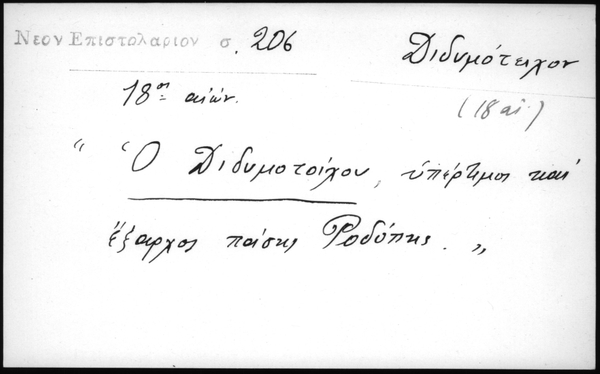 Νεον Επιστολαριον σ. 206
Διδυμότειχον
18ος αιών.
(18 αι.)
“ Ὁ Διδυμοτοίχου, ὑπέρτιμος καὶ
ἔξαρχος πάσης Ροδόπης. „